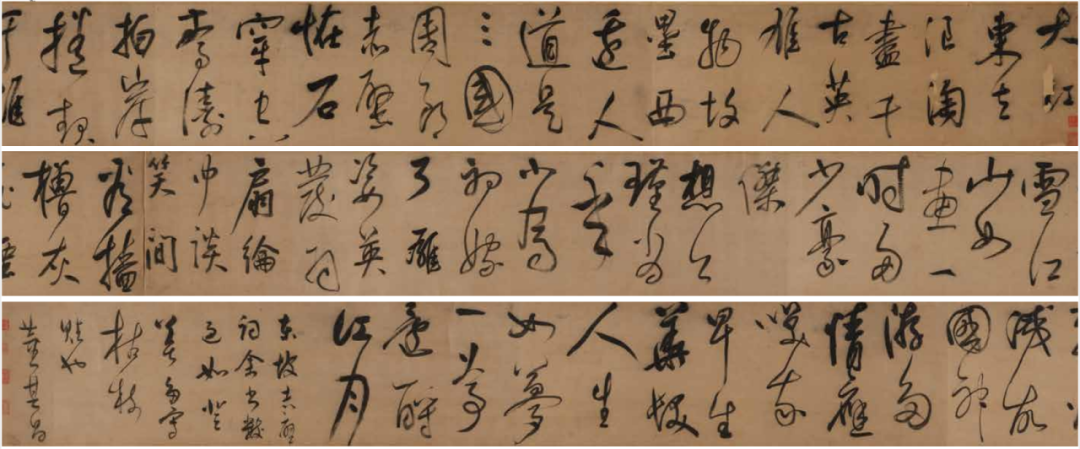 大江
東去
浪淘
盡千
古英
雄人
物故
壘西
邊人
道是
三國
周郎
赤壁
怪石
穿空
驚濤
拍岸
捲起
千堆
雪江
山如
畫一
時多
少豪
傑
想公
瑾當
年
小喬
初嫁
了雄
姿英
發羽
扇綸
巾談
笑間
看檣
櫓灰
飛煙
滅故
國神
游多
情應
笑我
早生
華髮
人生
如夢
一尊
還酹
江月
東坡赤壁
詞余書數
過如
枯枝
董其昌